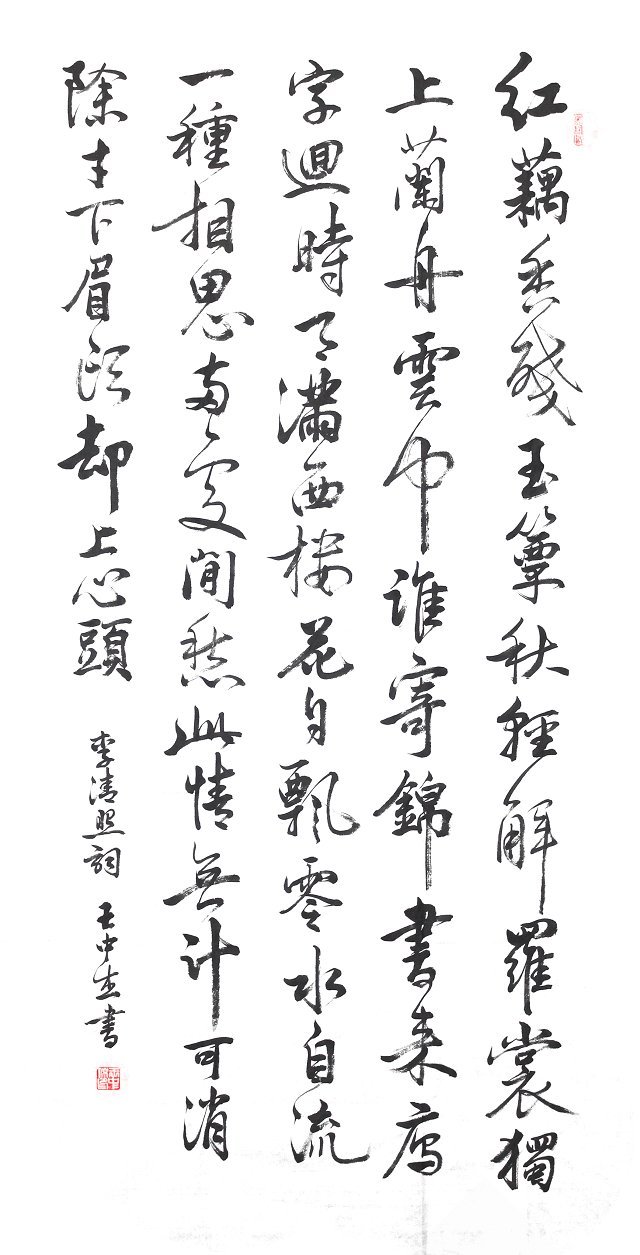 紅藕香殘玉簟秋輕解羅裳獨
上蘭舟雲中誰寄錦書来雁
字迴時月滿西樓花自飄零水自流
一種相思兩處閒愁此情無計可消
除才下眉頭却上心頭
李清照詞 王中書